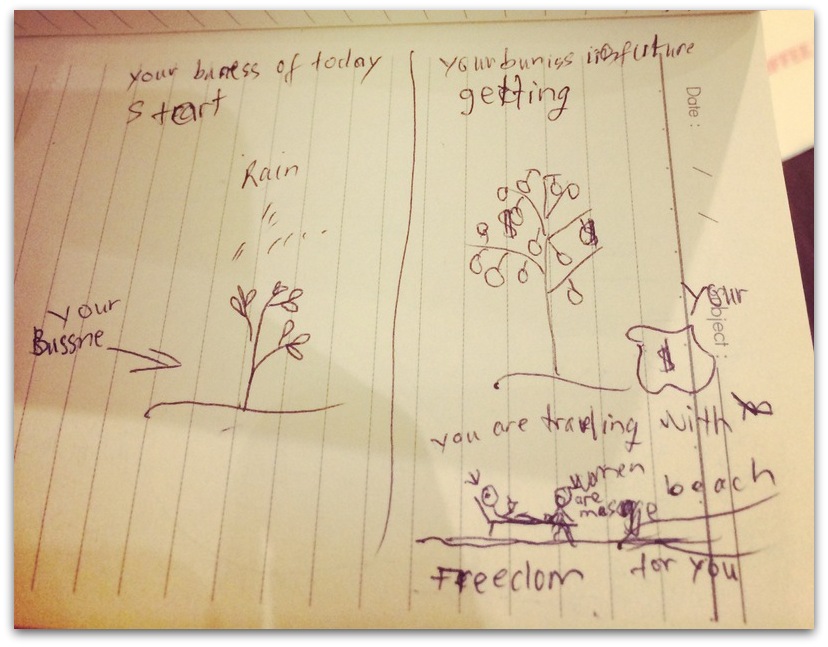 your buness of today
Start
Rain
your
Bussne
your buniss infuture
getting
Date :
Your
$
$
$
bject :
you are traveling with $
beach
women
are
massage
Freedom for you